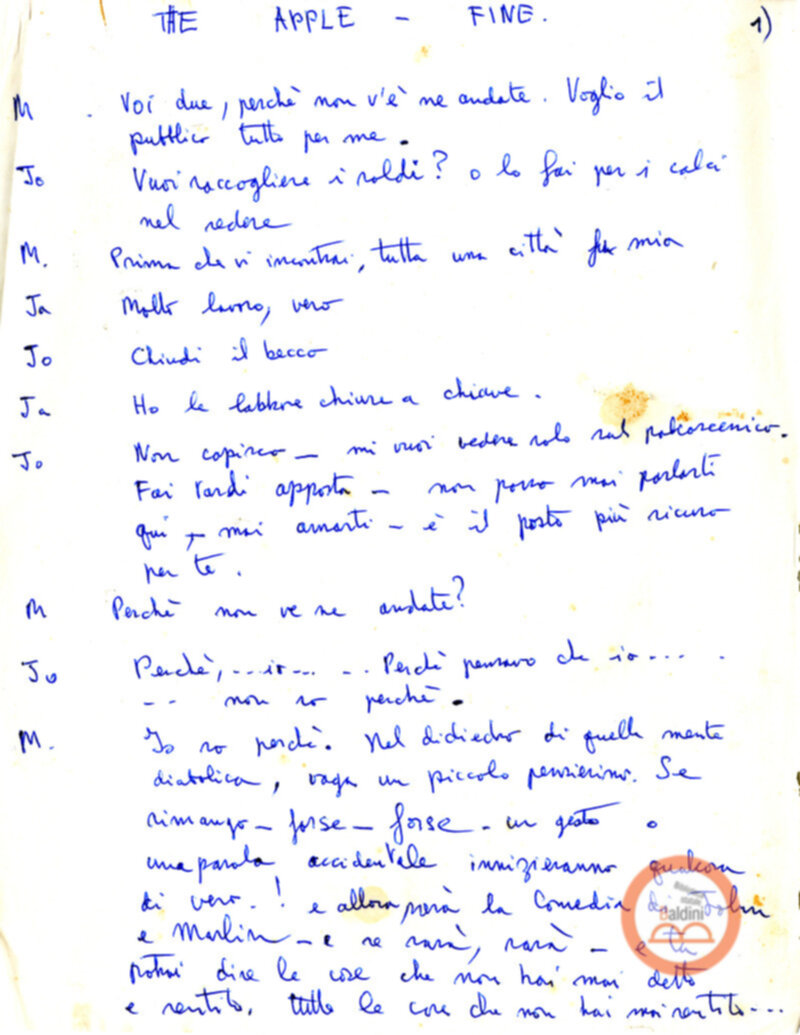 THE APPLE - FINE.
1)
M . Voi due, perchè non v'è ne andate. Voglio il
pubblico tutto per me.
Jo Vuoi raccogliere i soldi? o lo fai per i calci
nel sedere
M. Prima che vi incontrai, tutta una città fu mia
Ja Molto lavoro, vero
Jo Chiudi il becco
Ja Ho le labbra chiuse a chiave.
Jo Non capisco - mi vuoi vedere solo sul palcoscenico.
Fai tardi apposta - non posso mai parlarti
qui, - mai amarti - è il posto più sicuro
per te.
M Perchè non ve ne andate?
Jo Perchè, ...io... ... Perchè pensavo che io.... .
-- non so perchè.
M. Io so perchè. Nel didiedro di quella mente
diabolica, vaga un piccolo pensierino. Se
rimango - forse - forse - un gesto o
una parola accidentale innizieranno qualcosa
di vero. ! e allora sarà la Comedia di John
e Marlin - e se sarà, sarà - e tu
potrai dire le cose che non hai mai detto
e sentito, tutte le cose che non hai mai sentito...
Biblioteca
statale
Baldini